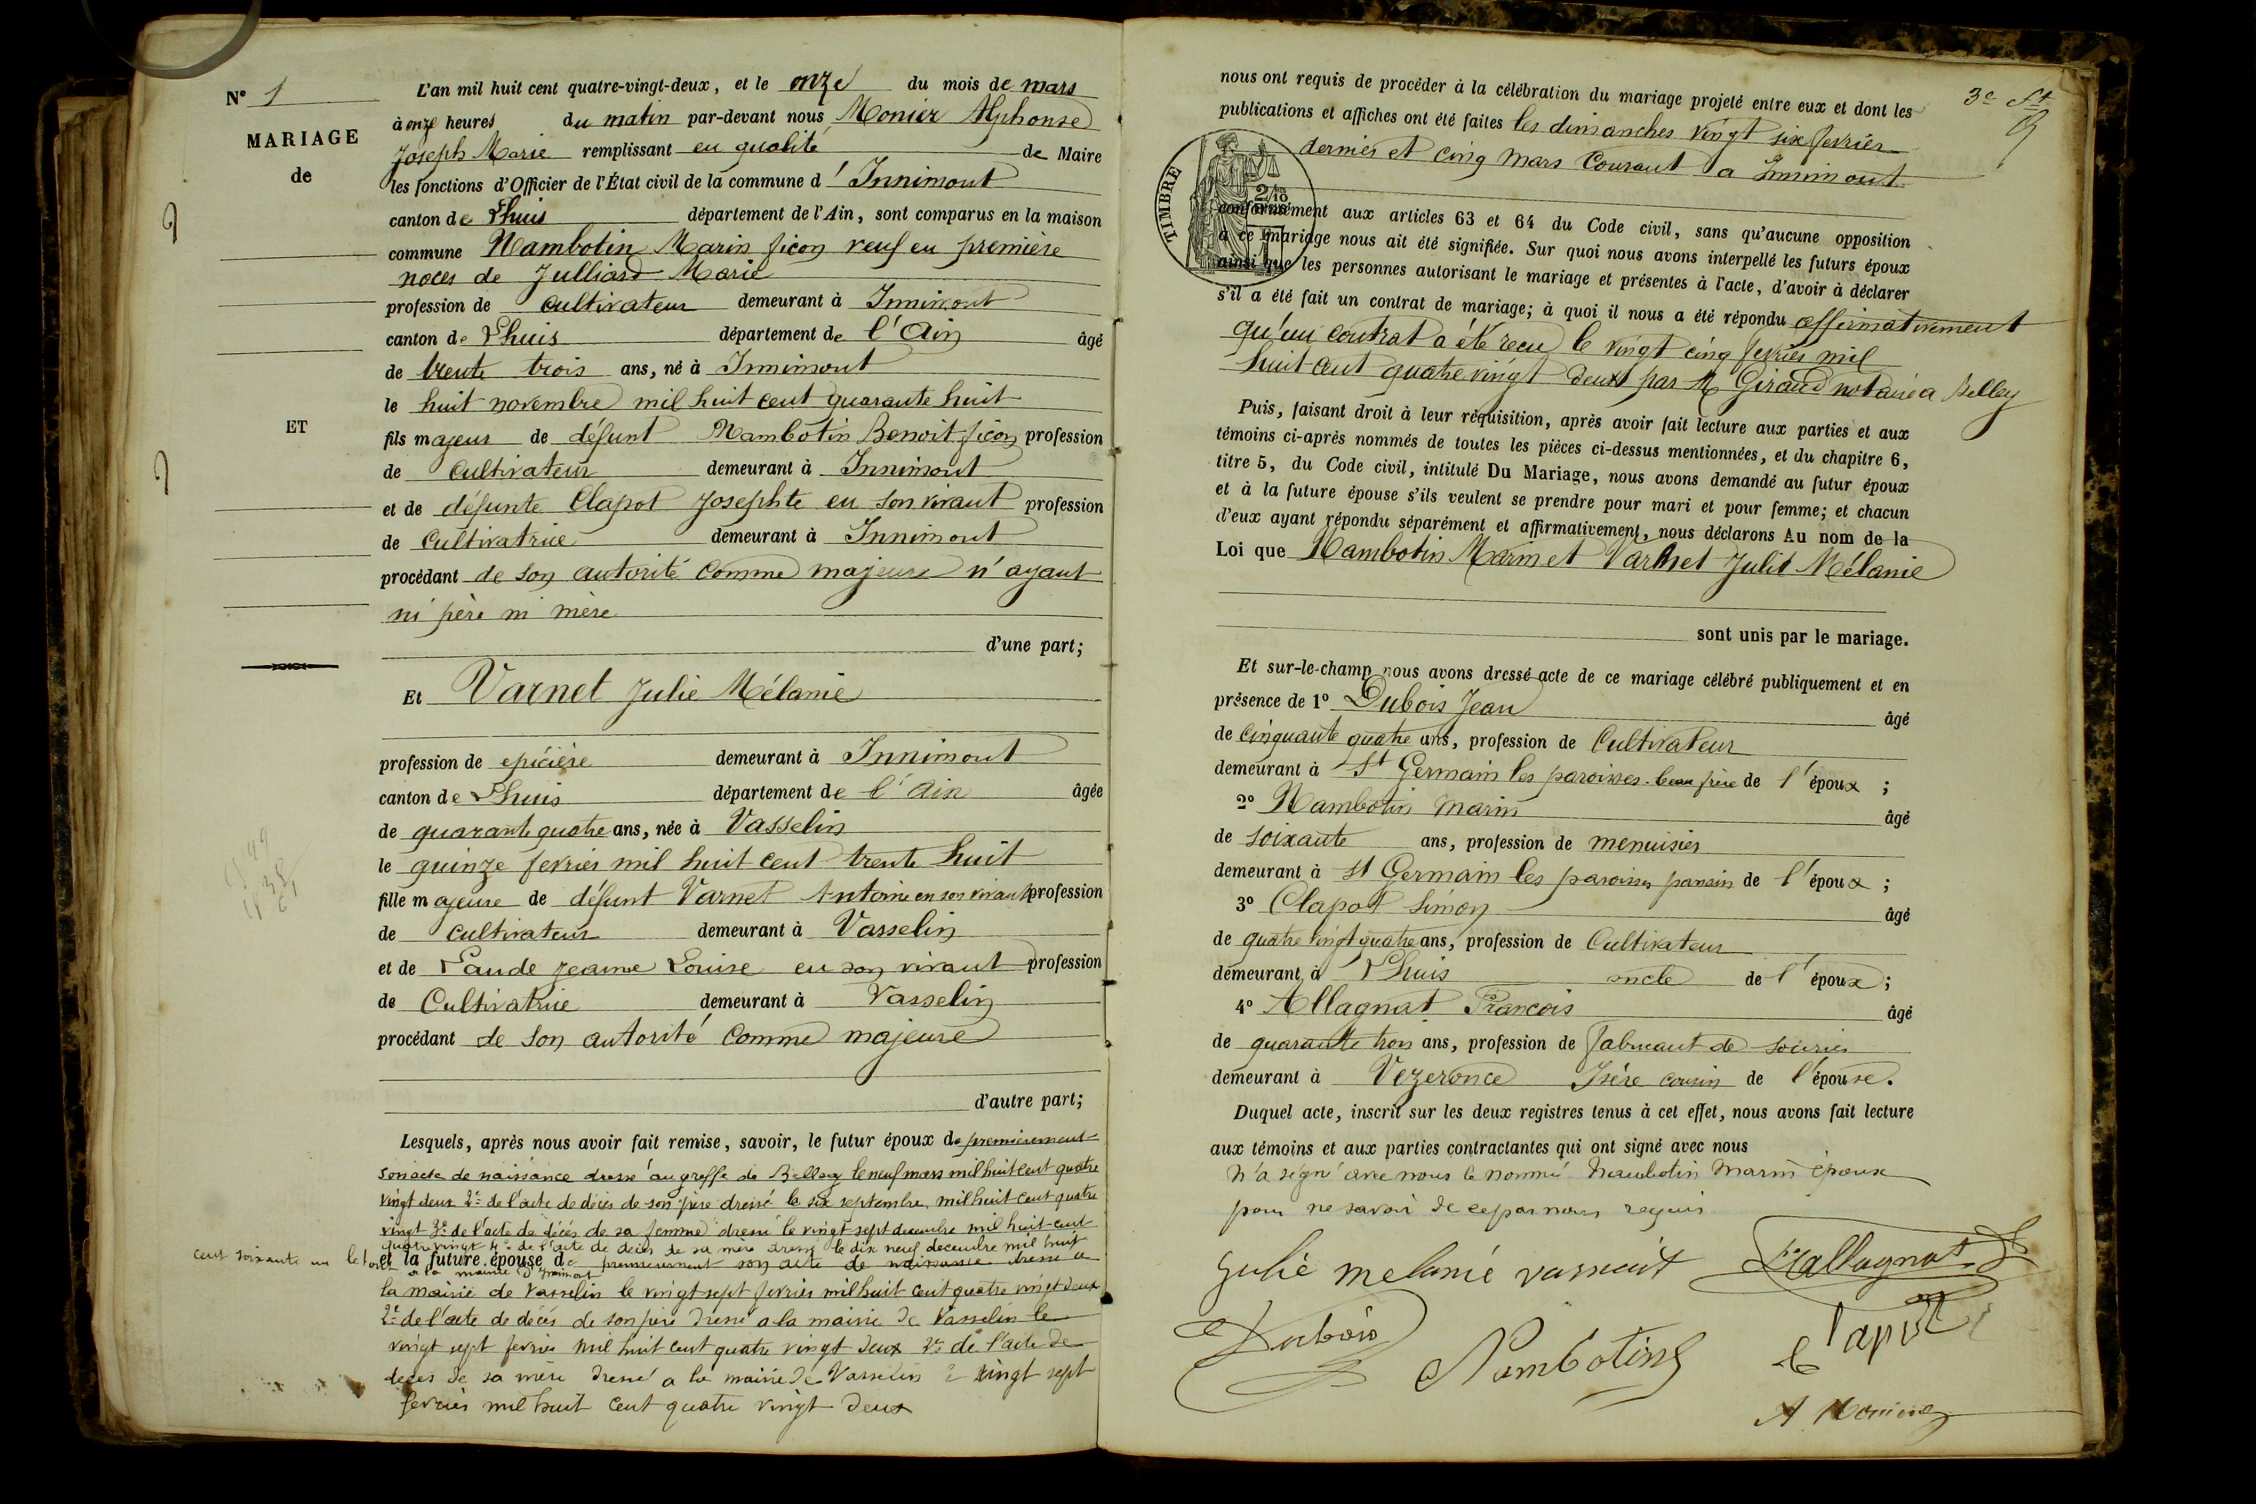 N° 1
MARIAGE
de
ET
L'an mil huit cent quatre-vingt-deux, et le onze du mois de mars
à onze heures du matin par-devant nous Monier Alphonse
Joseph Marie remplissant en qualité de Maire
les fonctions d'Officier de l'État civil de la commune d'Innimont
canton de Lhuis département de l'Ain, sont comparus en la maison
commune Nambotin Marin ficon veuf en première
noces de Julliard Marie
profession de cultivateur demeurant à Innimont
canton de Lhuis département de l'Ain âgé
de trente trois ans, né à Innimont
le huit novembre mil huit cent quarante huit
fils majeur de défunt Nambotin Benoit ficon profession
de cultivateur demeurant à Innimont
et de défunte Clapot Josephte en son vivant profession
de cultivatrice demeurant à Innimont
procédant de son autorité comme majeure n'ayant
ni père ni mère
d'une part;
Et Varnet Julie Mélanie
profession de epicière demeurant à Innimont
canton de Lhuis département de l'Ain âgée
de quarante quatre ans, née à Vasselin
le quinze fevrier mil huit cent trente huit
fille majeure de défunt Varnet Antoine en son vivant profession
de cultivateur demeurant à Vasselin
et de Laude Jeanne Louise en son vivant profession
de Cultivatrice demeurant à Vasselin
procédant de son autorité comme majeure
d'autre part;
Lesquels, après nous avoir fait remise, savoir, le futur époux de premièrement
son acte de naissance dressé au greffe de Belley le neuf mars mil huit cent quatre
vingt deux 2° de l'acte de décès de son père dressé le six septembre mil huit cent quatre
vingt 3° de l'acte de décès de sa femme dressé le vingt sept decembre mil huit cent
quatre vingt 4° de l'acte de décès de sa mère dressé le dix neuf decembre mil huit
cent soixante un le tout à la mairie d'Innimont
et la future épouse de premierement son acte de naissance dressé a
la mairie de Vasselin le vingt sept fevrier mil huit cent quatre vingt deux
2° de l'acte de décés de son père dressé a la mairie de Vasselin le
vingt sept fevrier mil huit cent quatre vingt deux de l'acte de
deces de sa mère dressé a la mairie de Vasselin vingt sept
fevrier mil huit cent quatre vingt deux
3e
nous ont requis de procéder à la célébration du mariage projeté entre eux et dont les
publications et affiches ont été faites les dimanches vingt six fevrier
dernier et cinq mars courant a Innimont
TIMBRE
2/10
conformément aux articles 63 et 64 du Code civil, sans qu'aucune opposition
à ce mariage nous ait été signifiée. Sur quoi nous avons interpellé les futurs époux
ainsi que les personnes autorisant le mariage et présentes à l'acte, d'avoir à déclarer
s'il a été fait un contrat de mariage; à quoi il nous a été répondu affirmativement
qu'un contrat a été recu le vingt cinq fevrier mil
huit cent quatre vingt deux par M Giraud notaire a Belley
Puis, faisant droit à leur réquisition, après avoir fait lecture aux parties et aux
témoins ci-après nommés de toutes les pièces ci-dessus mentionnées, et du chapitre 6,
titre 5, du Code civil, intitulé Du Mariage, nous avons demandé au futur époux
et à la future épouse s'ils veulent se prendre pour mari et pour femme; et chacun
d'eux ayant répondu séparément et affirmativement, nous déclarons Au nom de la
Loi que Nambotin Marin et Varnet Julie Mélanie
sont unis par le mariage.
Et sur-le-champ nous avons dressé acte de ce mariage célébré publiquement et en
présence de 1° Dubois Jean âgé
de cinquante quatre ans, profession de Cultivateur
demeurant à St Germain les paroisses beau frère de l'époux ;
2° Nambotin Marin âgé
de soixante ans, profession de menuisier
demeurant à St Germain les paroisses parrain de l'époux ;
3° Clapot Simon âgé
de quatre vingt quatre ans, profession de Cultivateur
demeurant à Lhuis oncle de l'époux ;
4° Allagnat Francois âgé
de quarante trois ans, profession de fabricant de
demeurant à Vezeronce Isère cousin de l'épouse.
Duquel acte, inscrit sur les deux registres tenus à cet effet, nous avons fait lecture
aux témoins et aux parties contractantes qui ont signé avec nous
N'a signé avec nous le nommé Nambotin Marin époux
pour ne savoir de ce par nous requis
Julie melanie varnait Fallagnat
Dubois Nambotin Clapot
A Monier